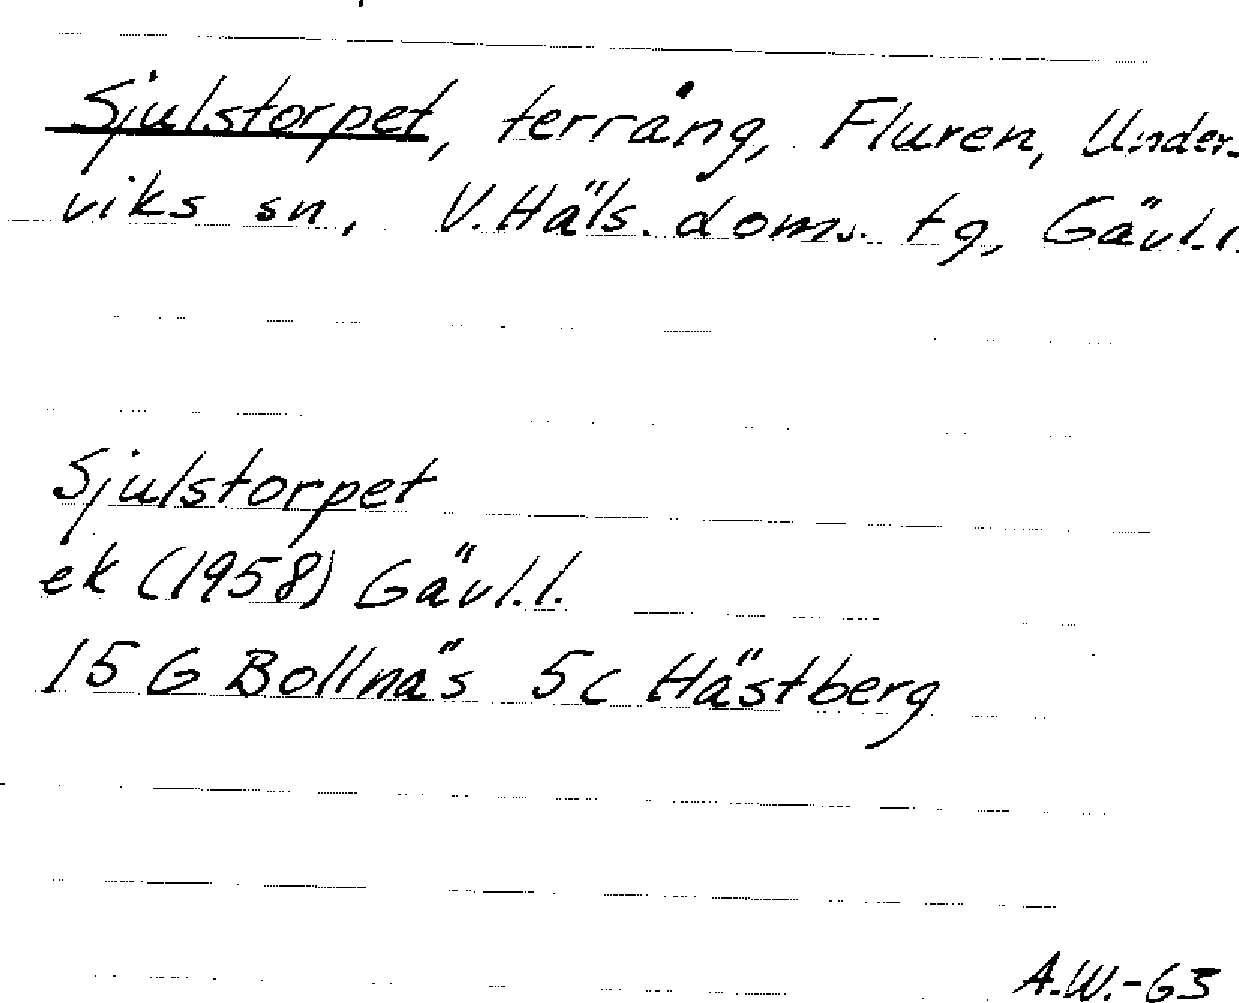 Sjulstorpet, terräng, Fluren, Unders-
viks sn, V.Häls. doms. tg, Gävl.l.
Sjulstorpet
ek (1958) Gävl.l.
15 G Bollnäs 5c Hästberg
A.W.-63